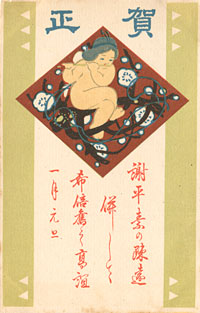 賀正
謝平素の疎遠
併して
希倍旧之高誼
一月元旦